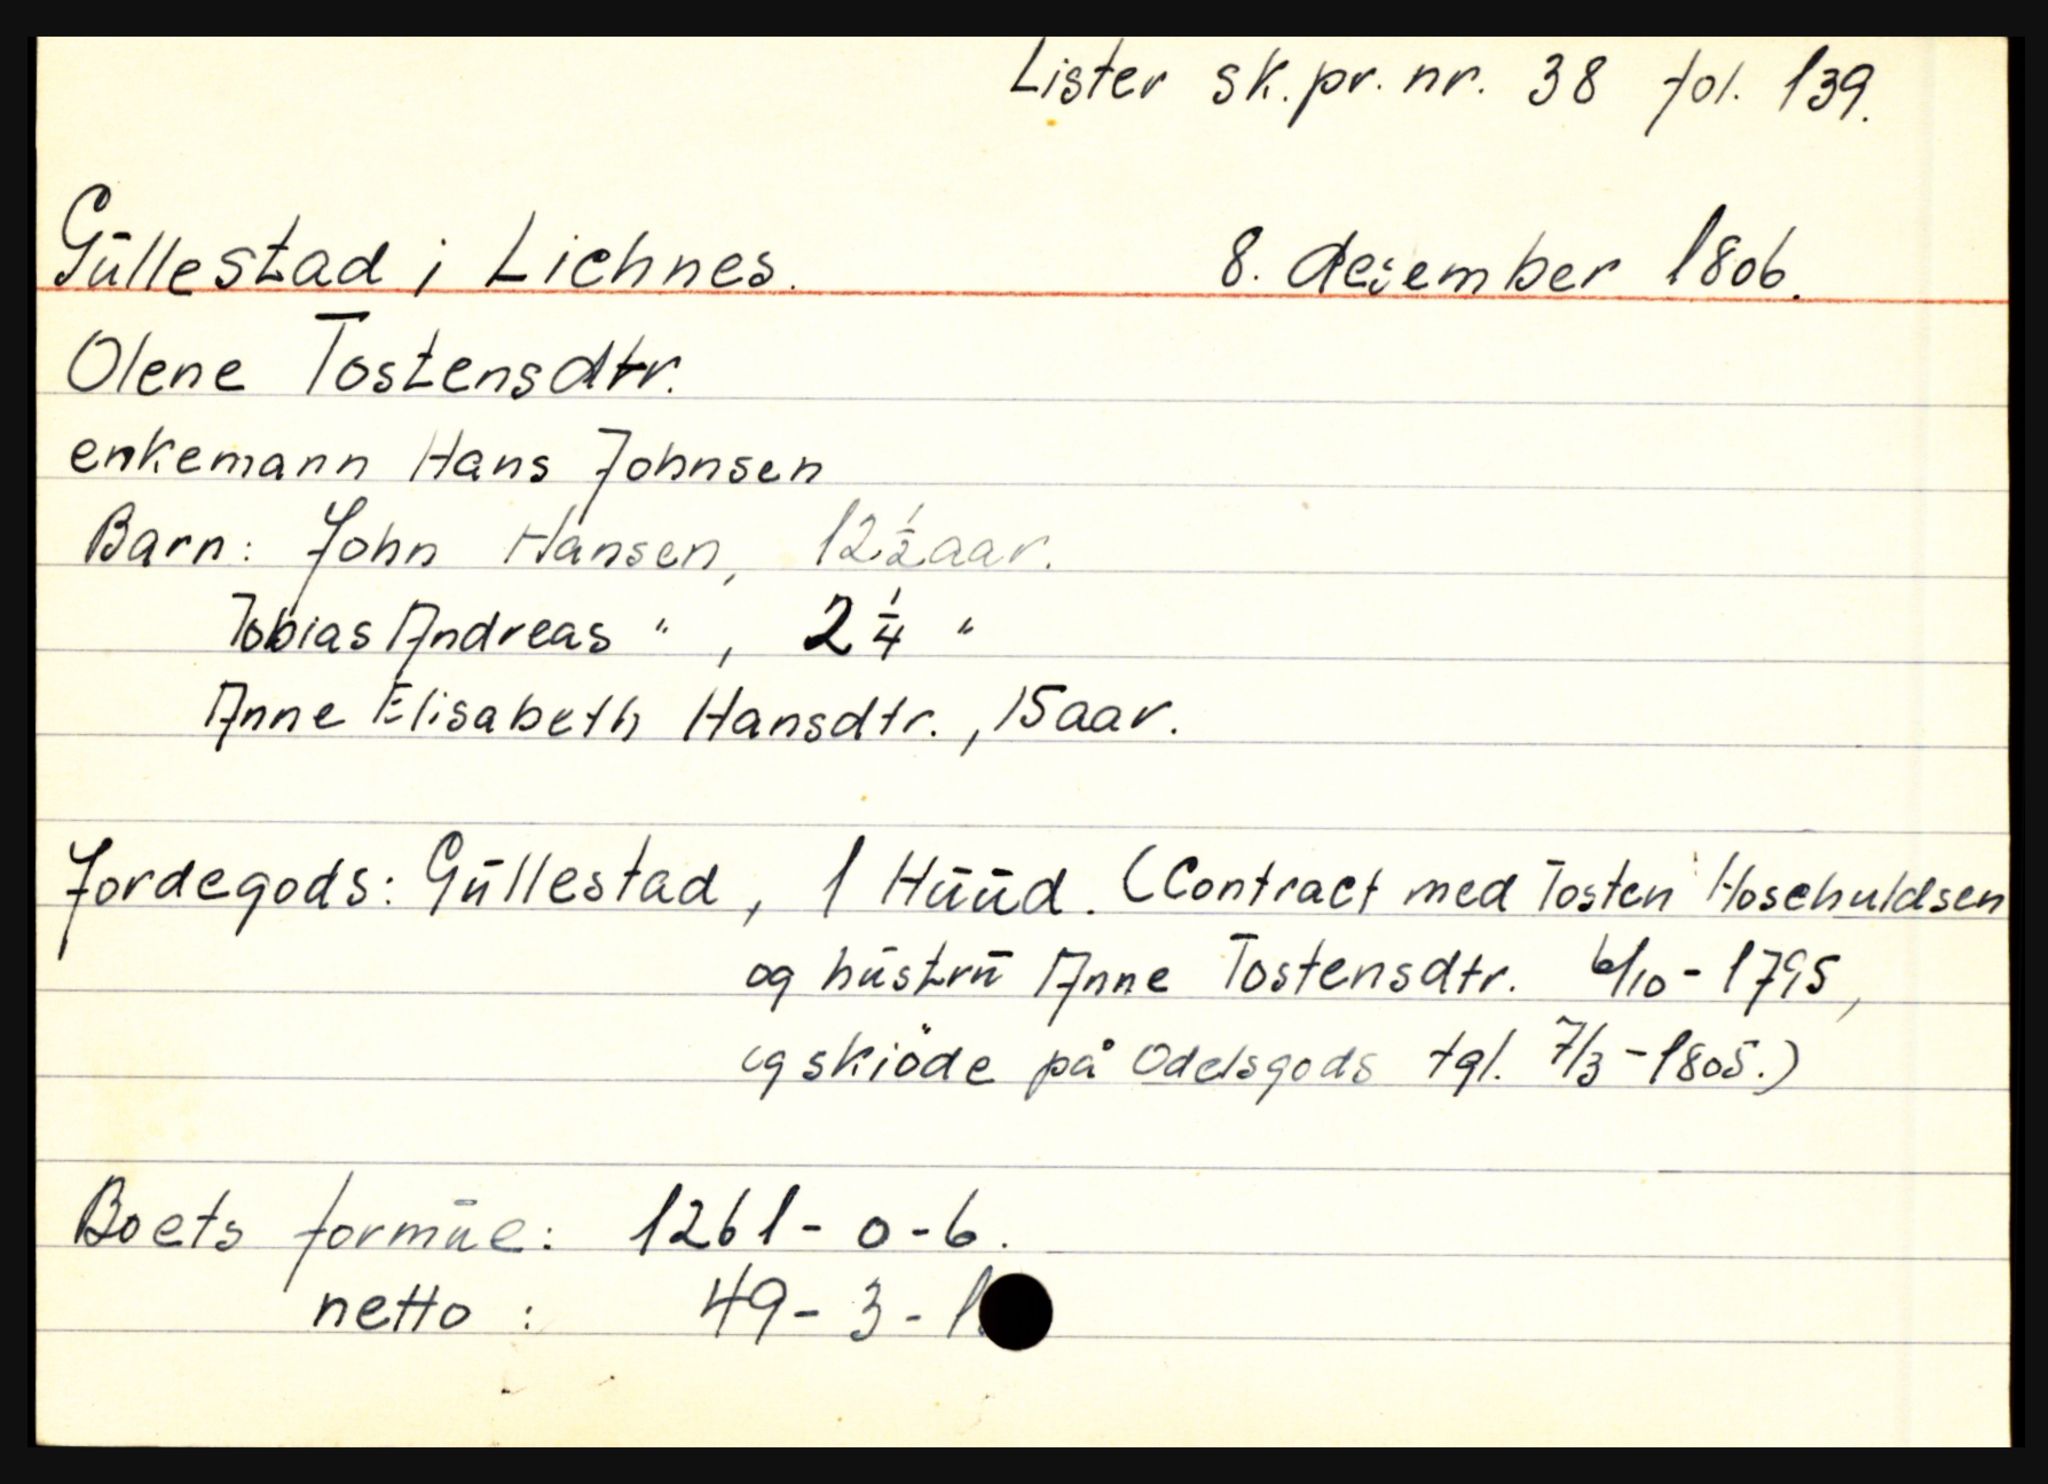 Lister sk.pr.nr. 38 fol. 139.
Gūllestad i Liehnes. 8. desember 1806.
Olene Tostensdtr.
enkemann Hans Johnsen
Barn: John Hansen, 12 1/2 aar.
Tobias Andreas " , 2 1/4 "
Anne Elisabeth Hansdtr., 15 aar.
Jordegods: Gūllestad, 1 Hūūd. (Contract med Tosten Hoschuldsen
og hūstrū Anne Tostensdtr. 6/10 - 1795,
og skiöde på Odelsgods tgl. 7/3 - 1805.)
Boets formūe: 1261 - 0 - 6.
netto : 49 - 3 - 1